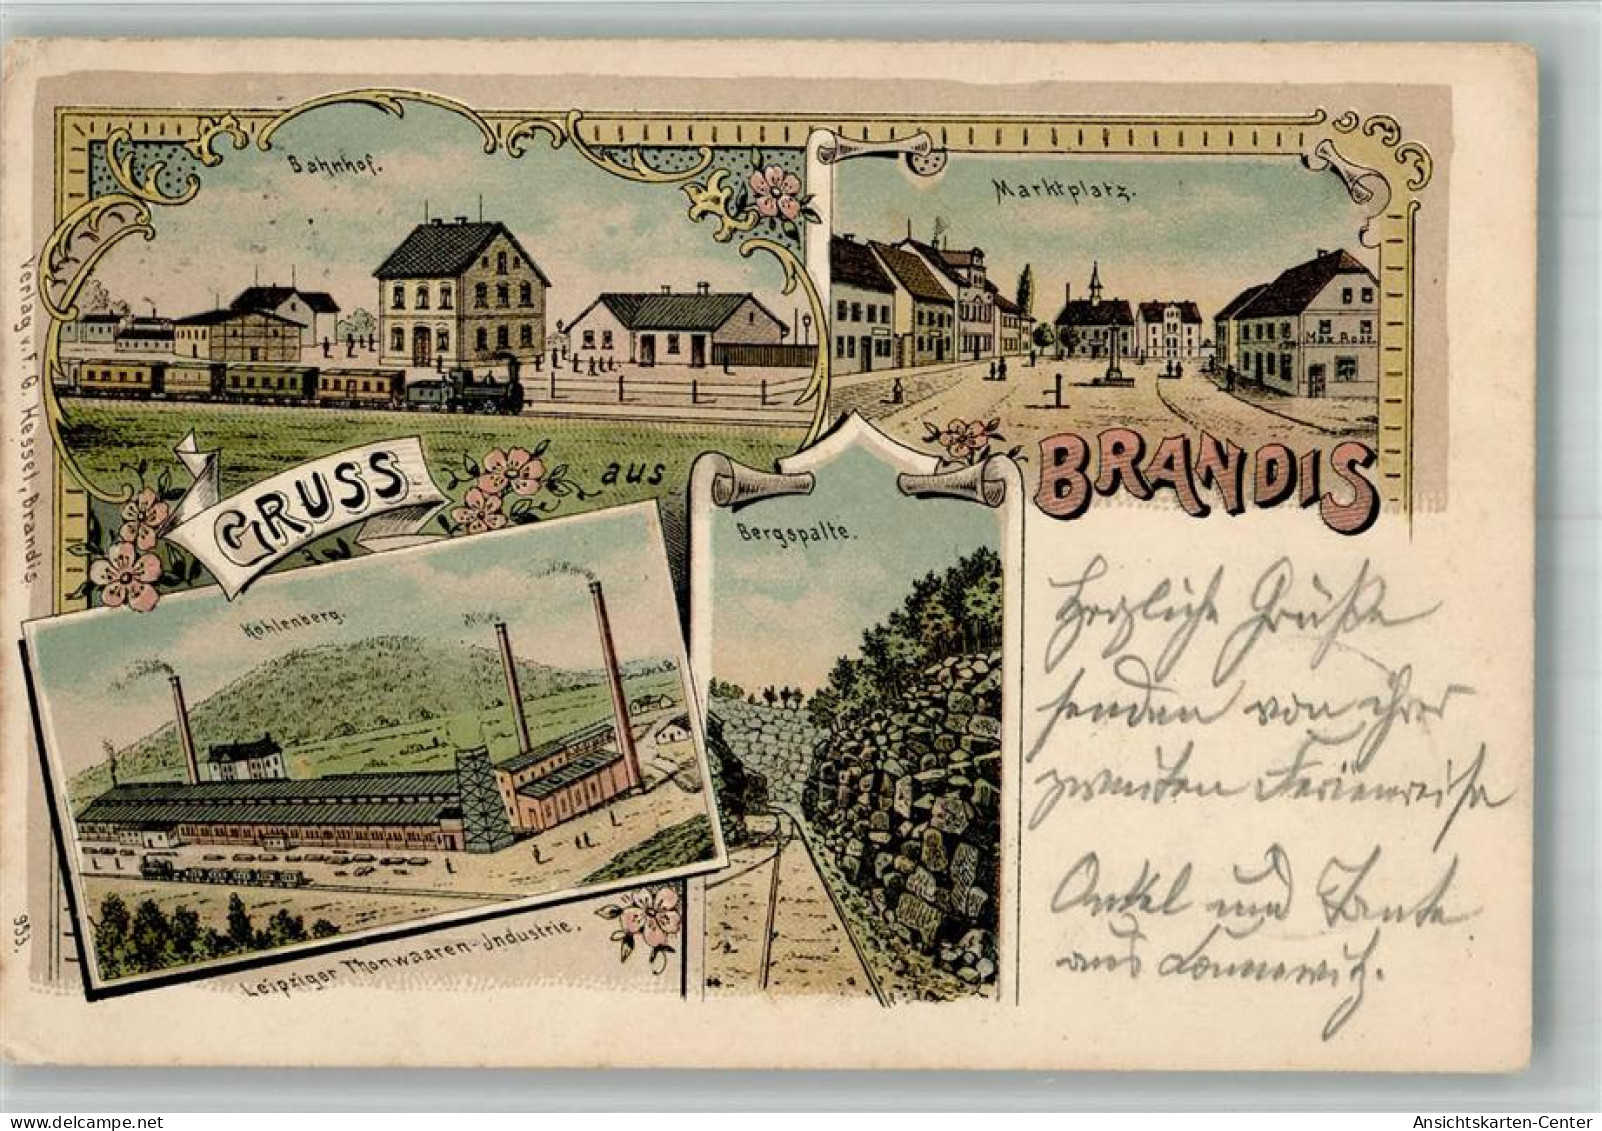 Bahnhof.
Marktplatz.
Max Rost.
GRUSS
aus
BRANDIS
Bergspalte.
Kohlenberg.
Leipziger Thonwaaren-Industrie.
Verlag v. F. G. Hessel, Brandis
953.
Herzliche Grüße
senden von ihrer
zweiten Ferienreise
Onkel und Tante
aus
delcampe.net
Ansichtskarten-Center